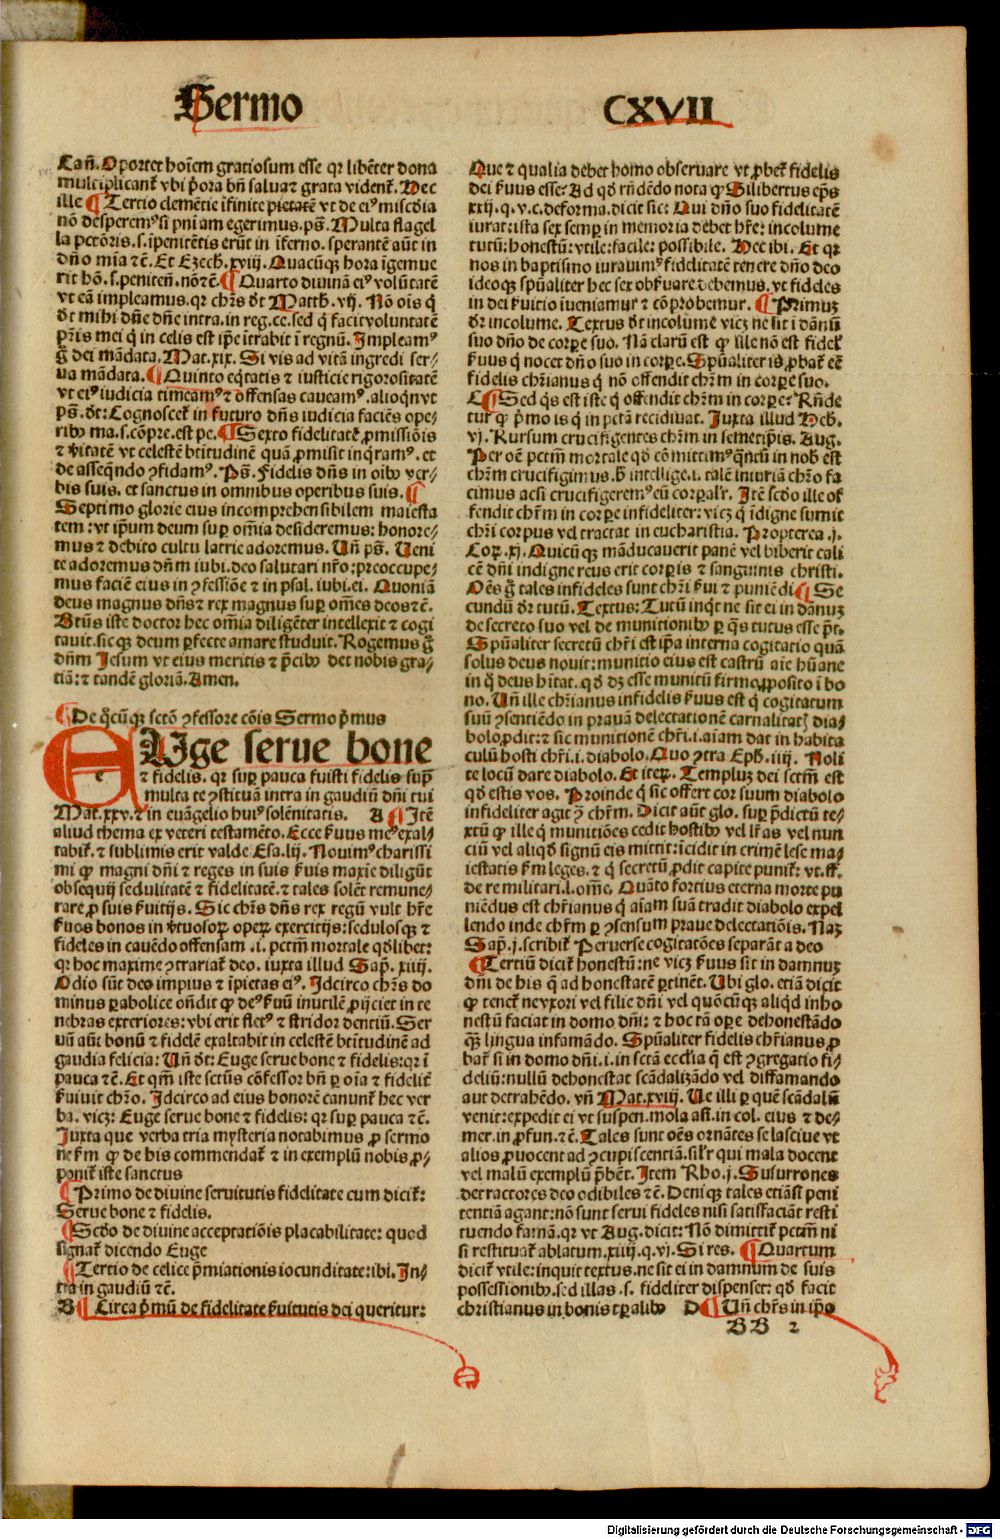 Sermo CXVII
Cañ. Oportet hoīem gratiosum esse qr libēter dona
multiplicant᷑ vbi p̄ora bn̄ saluaꝫ grata vident᷑. Hec
ille ¶ Tertio clemētie īfinite pietatē vt de eiꝰ misc̄dia
nō desperemꝰ si pn̄iam egerimus. ps̄. Multa flagel
la petōris .s. ipenitētis erūt in īferno. sperantē aūt in
dn̄o mīa ⁊c̄. Et Ezech. xviij. Quacūqꝫ hora īgemue
rit hō .s. peniteñ. nō ⁊c̄. ¶ Quarto diuinā eiꝰ volūtatē
vt eā impleamus. qr chr̄s dt Matth. vij. Nō ois q̄
dt mihi dn̄e dn̄e intra. in reg. ce. sed q̄ facit voluntatē
pr̄is mei q̄ in celis est ip̄e itrabit ī regnū. Impleamꝰ
g̊ dei mādata. Mat. xix. Si vis ad vitā ingredi ser⸗
ua mādata. ¶ Quinto eq̄tatis ⁊ iusticie rigorositatē
vt eiꝰ iudicia timeamꝰ ⁊ offensas caueamꝰ. alioqn̄ vt
ps̄. dt: Cognoscet᷑ in futuro dn̄s iudicia faciēs ope⸗
ribꝰ ma. s. cōpre. est pc. ¶ Sexto fidelitatē ꝓmissiōis
⁊ v̄itatē vt celestē btītudinē quā ꝓmisit inq̄ramꝰ. et
de asseq̄ndo ꝯfidamꝰ. Ps̄. Fidelis dn̄s in oībꝰ ver⸗
bis suis. et sanctus in omnibus operibus suis. ¶
Septimo glorie eius incomprehensibilem maiesta
tem: vt ip̄um deum suꝑ om̄ia desideremus: honore⸗
mus ⁊ debito cultu latrie adoremus. Un̄ ps̄. Ueni
te adoremus dn̄m iubi. deo salutari nr̄o: preoccupe⸗
mus faciē eius in ꝯfessiōe ⁊ in psal. iubi. ei. Quoniā
deus magnus dn̄s ⁊ rex magnus suꝑ om̄es deos ⁊c̄.
Btūs iste doctor hec om̄ia diligēter intellexit ⁊ cogi
tauit. sicqꝫ deum ꝑfecte amare studuit. Rogemus g̊
dn̄m Iesum vt eius meritis ⁊ p̄cibꝰ det nobis gra⸗
tiā: ⁊ tandē gloriā. Amen.
¶ De q̄cūqꝫ sctō ꝯfessore cōis Sermo p̄mus
EUge serue bone
⁊ fidelis. qr suꝑ pauca fuisti fidelis suꝑ
multa te ꝯstituā intra in gaudiū dn̄i tui
Mat. xxv. ⁊ in euāgelio huiꝰ solēnitatis. A ¶ Itē
aliud thema ex veteri testamēto. Ecce ẜuus meꝰ exal⸗
tabit᷑. ⁊ sublimis erit valde Esa. lij. Nouimꝰ charissi
mi ꝙ magni dn̄i ⁊ reges in suis ẜuis maxīe diligūt
obsequij sedulitatē ⁊ fidelitatē. ⁊ tales solēt remune⸗
rare ꝓ suis ẜuitijs. Sic chr̄s dn̄s rex regū vult hr̄e
ẜuos bonos in v̄tuosoꝝ opeꝝ exercitijs: sedulosqꝫ ⁊
fideles in cauēdo offensam .i. pctm̄ mortale qd̄libet:
qr hoc maxime ꝯtrariat᷑ deo. iuxta illud Sap̄. xiiij.
Odio sūt deo impius ⁊ īpietas eiꝰ. Idcirco chr̄s do
minus ꝑabolice on̄dit ꝙ deꝰ ẜuū inutilē ꝓijciet in te
nebras exteriores: vbi erit fletꝰ ⁊ stridor dentiū. Ser
uū aūt bonū ⁊ fidelē exaltabit in celestē btītudinē ad
gaudia felicia: Un̄ dt: Euge serue bone ⁊ fidelis: qr ī
pauca ⁊c̄. Et qm̄ iste sctūs cōfessor bn̄ ꝑ oīa ⁊ fidelit᷑
ẜuiuit chr̄o. Idcirco ad eius honorē canunt᷑ hec ver
ba. vicꝫ: Euge serue bone ⁊ fidelis: qr suꝑ pauca ⁊c̄.
Iuxta que verba tria mysteria notabimus ꝓ sermo
ne ẜm ꝙ de his commendat᷑ ⁊ in exemplū nobis ꝓ⸗
ponit᷑ iste sanctus
¶ Primo de diuine seruitutis fidelitate cum dicit᷑:
Serue bone ⁊ fidelis.
¶ Scd̄o de diuine acceptatiōis placabilitate: quod
signat᷑ dicendo Euge
¶ Tertio de celice p̄miationis iocunditate: ibi. In⸗
tra in gaudiū ⁊c̄.
B ¶ Circa p̄mū de fidelitate ẜuitutis dei queritur:
Que ⁊ qualia debet homo obseruare vt ꝓbet᷑ fidelis
dei ẜuus esse. Ad qd̄ rn̄dēdo nota ꝙ Gilibertus ep̄s
xxij. q. v. c. de forma. dicit sic: Qui dn̄o suo fidelitatē
iurat: ista sex semꝑ in memoria debet hr̄e: incolume
tutū: honestū: vtile: facile: possibile. Hec ibi. Et qr
nos in baptismo iurauimꝰ fidelitatē tenere dn̄o deo
ideoqꝫ spūaliter hec sex obẜuare debemus. vt fideles
in dei ẜuitio īueniamur ⁊ cōprobemur. ¶ Primuꝫ
dr̄ incolume. Textus dt incolumē vicꝫ ne sit ī dānū
suo dn̄o de corꝑe suo. Nā clarū est ꝙ ille nō est fidel᷑
ẜuus q̄ nocet dn̄o suo in corꝑe. Spūaliter is ꝓbat᷑ eē
fidelis chr̄ianus q̄ nō offendit chr̄m in corꝑe suo.
C ¶ Sed q̄s est iste q̄ offendit chr̄m in corꝑe: Rn̄de
tur ꝙ p̄mo is q̄ in pctā recidiuat. Iuxta illud Heb.
vj. Rursum crucifigentes chr̄m in semetip̄is. Aug.
Per oē pctm̄ mortale qd̄ cōmittimꝰ q̄ntū in nob᷑ est
chr̄m crucifigimus. h̄ intellige .i. talē iniuriā chr̄o fa
cimus acsi crucifigeremꝰ eū corꝑalr̄. Itē scd̄o ille of
fendit chr̄m in corꝑe infideliter: vicꝫ q̄ īdigne sumit
chr̄i corpus vel tractat in eucharistia. Propterea .j.
Coꝝ. xj. Quicūqꝫ māducauerit panē vel biberit cali
cē dn̄i indigne reus erit corꝑis ⁊ sanguinis christi.
Oēs g̊ tales infideles sunt chr̄i ẜui ⁊ puniēdi ¶ Se
cundū dr̄ tutū. Textus: Tutū inqt̄ ne sit ei in dānuꝫ
de secreto suo vel de munitionibꝰ ꝑ q̄s tutus esse pt̄.
Spūaliter secretū chr̄i est ip̄a interna cogitatio quā
solus deus nouit: munitio eius est castrū aīe hūane
in q̄ deus hītat. qd̄ dꝫ esse munitū firmo ꝓposito ī bo
no. Un̄ ille chr̄ianus infidelis ẜuus est q̄ cogitatum
suū ꝯsentiēdo in prauā delectationē carnalitatꝫ dia⸗
bolo ꝓdit: ⁊ sic munitionē chr̄i .i. aīam dat in habita
culū hosti chr̄i .i. diabolo. Quo ꝯtra Eph. iiij. Noli
te locū dare diabolo. Et iteꝝ. Templuꝫ dei sctm̄ est
qd̄ estis vos. Proinde q̄ sic offert cor suum diabolo
infideliter agit ꝯ̄ chr̄m. Dicit aūt glo. suꝑ p̄dictū te⸗
xtū ꝙ ille q̄ munitiōes cedit hostibꝰ vel lr̄as vel nun
ciū vel aliqd̄ signū eis mittit: īcidit in crimē lese ma⸗
iestatis ẜm leges. ⁊ q̄ secretū ꝓdit capite punit᷑: vt .ff.
de re militari. l. om̄e. Quāto fortius eterna morte pu
niēdus est chr̄ianus q̄ aīam suā tradit diabolo expel
lendo inde chr̄m ꝑ ꝯsensum praue delectatiōis. Naꝫ
Sap̄. j. scribit᷑ Peruerse cogitatōes separāt a deo
¶ Tertiū dicit᷑ honestū: ne vicꝫ ẜuus sit in damnuꝫ
dn̄i de his q̄ ad honestatē ꝑtinēt. Ubi glo. etiā dicit
ꝙ tenet᷑ ne vxori vel filie dn̄i vel quōcūqꝫ aliqd̄ inho
nestū faciat in domo dn̄i: ⁊ hoc tā oꝑe dehonestādo
q̄ꝫ lingua infamādo. Spūaliter fidelis chr̄ianus ꝓ
bat᷑ si in domo dn̄i .i. in sctā ecc̄lia q̄ est ꝯgregatio fi⸗
deliū: nullū dehonestat scādalizādo vel diffamando
aut detrahēdo. vn̄ Mat. xviij. Ue illi ꝑ quē scādalū
venit: expedit ei vt suspen. mola asi. in col. eius ⁊ de⸗
mer. in ꝓfun. ⁊c̄. Tales sunt oēs ornātes se lasciue vt
alios ꝓuocent ad ꝯcupiscentiā. silr̄ qui mala docent
vel malū exemplū p̄bēt. Item Rho. j. Susurrones
detractores deo odibiles ⁊c̄. Deniqꝫ tales etiāsi peni
tentiā agant: nō sunt serui fideles nisi satisfaciāt resti
tuendo famā. qr vt Aug. dicit: Nō dimittit᷑ pctm̄ ni
si restituat᷑ ablatum. xiiij. q. vj. Si res. ¶ Quartum
dicit᷑ vtile: inquit textus. ne sit ei in damnum de suis
possessionibꝰ. sed illas .s. fideliter dispenset: qd̄ facit
christianus in bonis tꝑalibꝰ D ¶ Un̄ chr̄s in ip̄o
BB 2
Digitalisierung gefördert durch die Deutsche Forschungsgemeinschaft - DFG